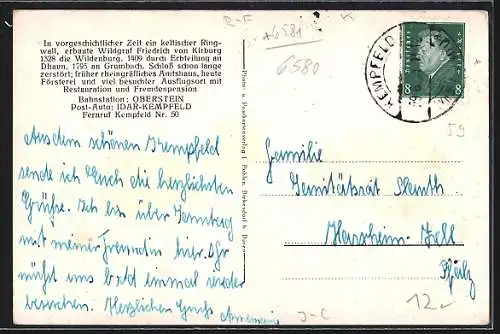 In vorgeschichtlicher Zeit ein keltischer Ring-
wall, erbaute Wildgraf Friedrich von Kirburg
1328 die Wildenburg. 1409 durch Erbteilung an
Dhaun, 1795 an Grumbach. Schloß schon lange
zerstört; früher rheingräfliches Amtshaus, heute
Försterei und viel besuchter Ausflugsort mit
Restauration und Fremdenpension
Bahnstation: OBERSTEIN
Post-Auto: IDAR-KEMPFELD
Fernruf Kempfeld Nr. 50
Aus dem schönen Kempfeld
sende ich Euch die herzlichsten
Grüße. Ich bin über Sonntag
mit meiner Freundin hier. Ihr
müßt uns bald einmal wieder
besuchen. Herzlichen Gruß Annemarie
R-F
*6581
6580
K
KEMPFELD
8 8
59
Familie
Sanitätsrat
Herxheim-Zell
Pfalz
12.-
J-C